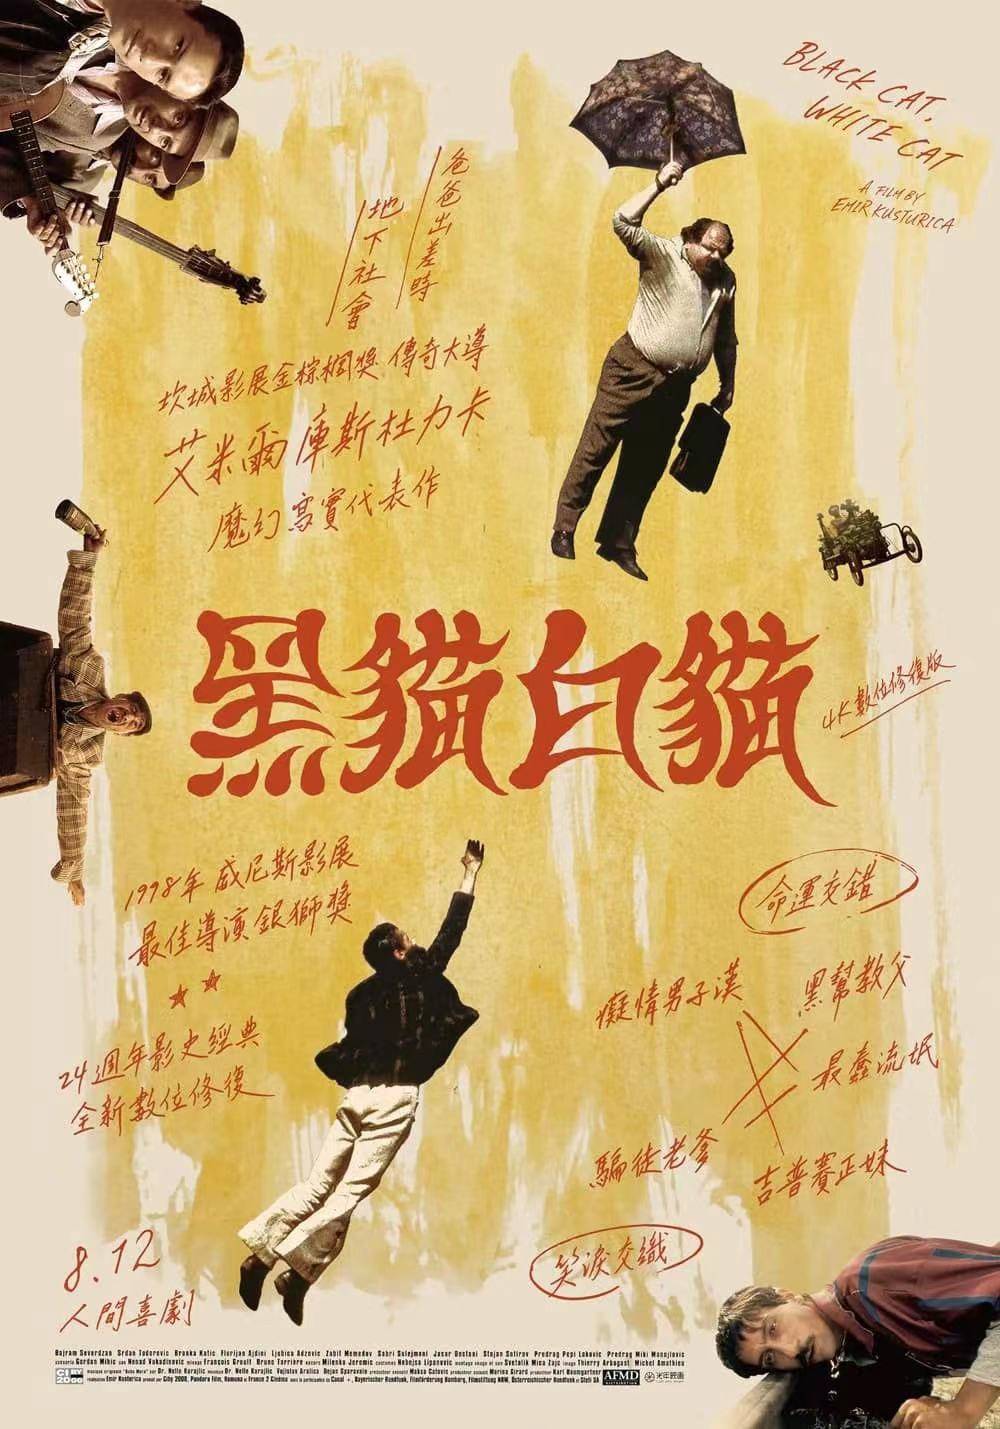 BLACK CAT,
WHITE CAT
A FILM BY
EMIR KUSTURICA
爸爸出差時
地下社會
坎城影展金棕櫚獎 傳奇大導
艾米爾庫斯杜力卡
魔幻寫實代表作
黑貓白貓
4K數位修復版
1998年 威尼斯影展
最佳導演銀獅獎
24週年影史經典
全新數位修復
命運交錯
癡情男子漢
黑幫教父
最蠢流氓
騙徒老爹
吉普賽正妹
笑淚交織
8.12
人間喜劇
Bajram Severdzan Srdan Todorovic Branka Katic Florijan Ajdini Ljubica Adzovic Zabit Memedov Sabri Sulejmani Jasar Destani Stojan Sotirov Predrag Pepi Lakovic Predrag Miki Manojlovic
CI BY
2000
AFMD
DISTRIBUTION
光年映畫